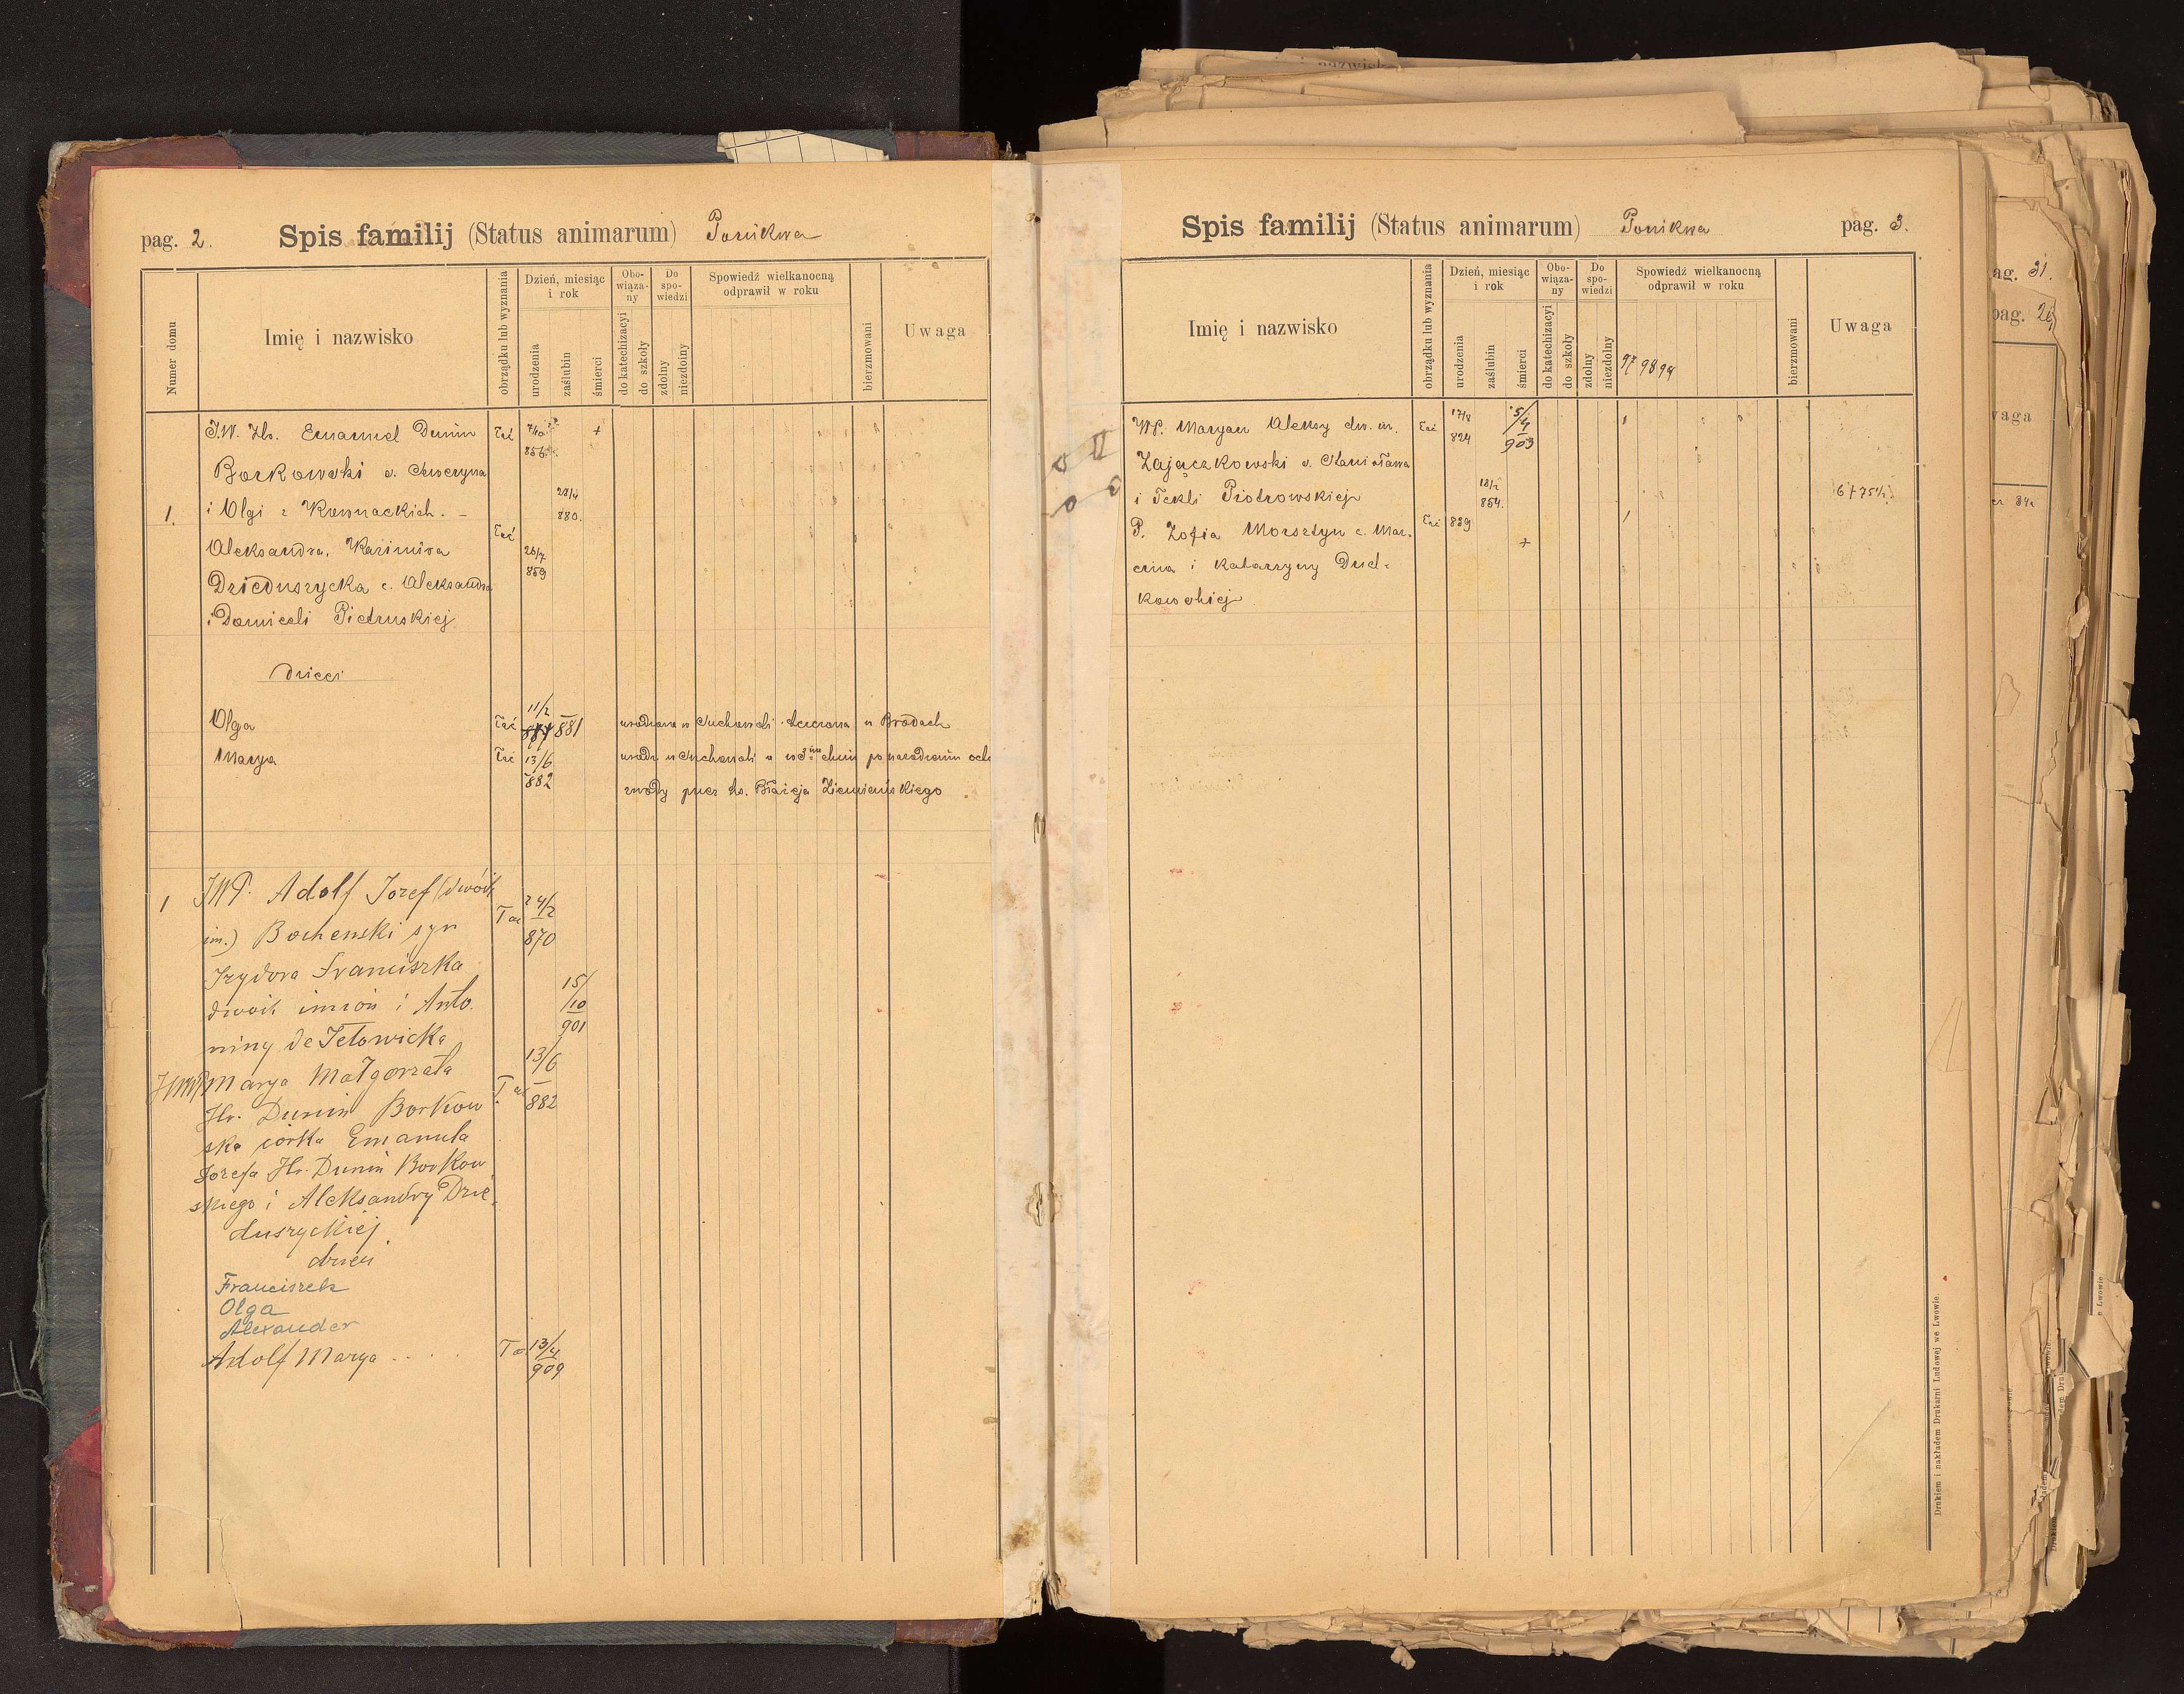 pag. 2.
Spis familij (Status animarum) Ponikwa
Numer domu
Imię i nazwisko
obrządku lub wyznania
Dzień, miesiąc i rok
urodzenia
zaślubin
śmierci
Obo-wiąza-ny
do katechizacyi
do szkoły
Do spo-wiedzi
zdolny
niezdolny
Spowiedź wielkanocną
odprawił w roku
bierzmowani
Uwaga
J.W. Hr. Emanuel Dunin łać 7/10 856 +
Borkowski s. Seweryna
1. i Olgi z Kownackich. – 28/4 880.
Aleksandra, Kazimira łać 26/7 859
Dzieduszycka c. Aleksandra
i Domiceli Pietruskiej
Dzieci
Olga łać 11/2 881 urodzona w Suchowoli chrzczona w Brodach
Marya łać 13/6 882 urodz. w Suchowoli a w
zwody przez ks. Błażeja Ziemiańskiego
1 JWP. Adolf Jozef (dwóch łac 24/2 870
im.) Bochenski syn
Izydora Franciszka
dwoch imion i Anto. 15/10 901
niny de Jełowicka
JWP Marya Małgorzata łac 13/6 882
Hr. Dunin Borkow
ska córka Emanuela
Jozefa Hr. Dunin Borkow
skiego i Aleksandry Dzie-
duszyckiej.
dzieci
Franciszek
Olga
Alexander
Adolf Marya . . . . łac 13/4 909
Spis familij (Status animarum) Ponikwa
pag. 3.
Imię i nazwisko
obrządku lub wyznania
Dzień, miesiąc i rok
urodzenia
zaślubin
śmierci
Obo-wiąza-ny
do katechizacyi
do szkoły
Do spo-wiedzi
zdolny
niezdolny
Spowiedź wielkanocną
odprawił w roku
97 98 99
bierzmowani
Uwaga
WP. Maryan Aleksy dw. im. łać 17/8 824 5/4 903
Zajączkowski s. Stanisława
i Tekli Piotrowskiej 18/2 854.
P. Zofia Morsztyn c. Mar- łać 839 +
cina i Katarzyny Dud-
kowskiej
Drukiem i nakładem Drukarni Ludowej we Lwowie.
ag. 31.
pag. 26
waga
e Lwowie.